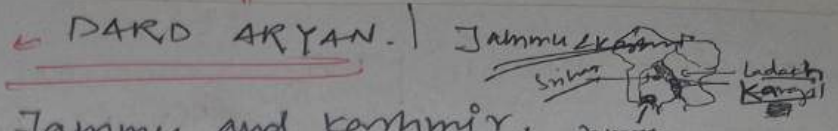 ← DARD ARYAN. | Jammu & Kashmir
Ladakh
Kargil
Jammu and Kashmir,